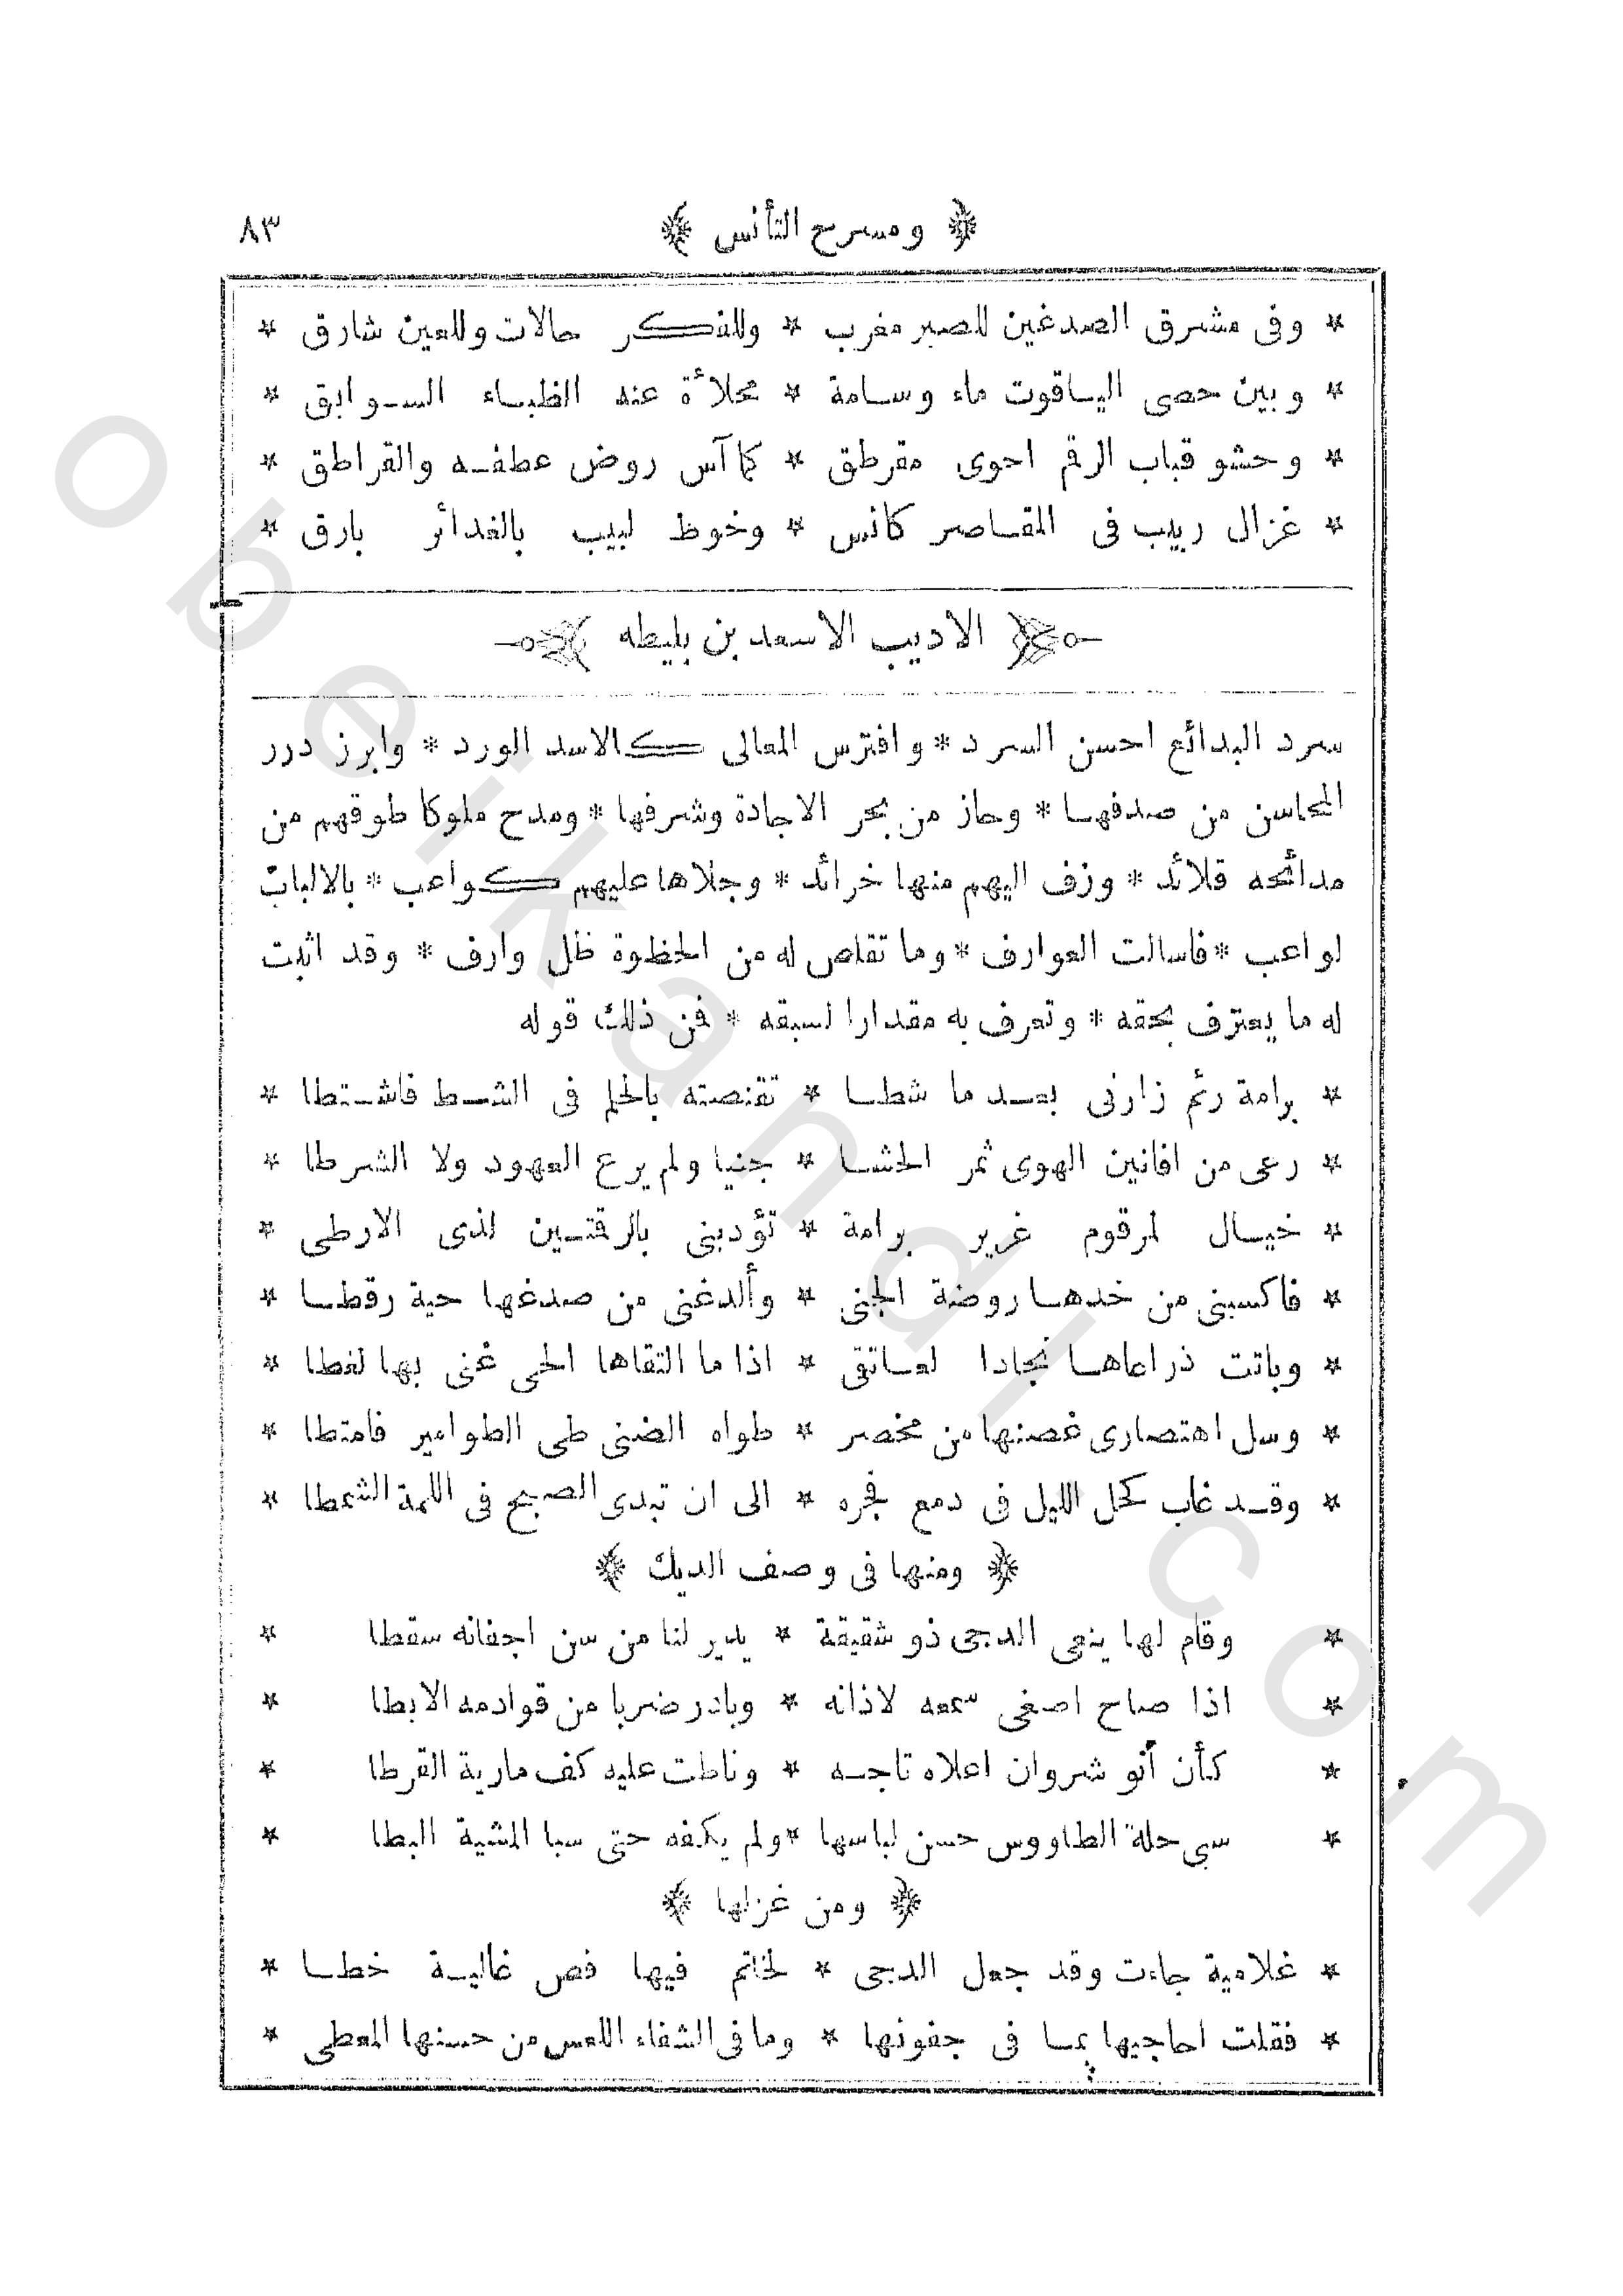 ﴿ ومسرح التأنس ﴾ ٨٣
* وفى مشرق الصدغين للصبر مغرب * وللفكر حالات وللعين شارق *
* وبين حصى الياقوت ماء وسامة * محلأة عنه الظباء السوابق *
* وحشو قباب الرقم احوى مقرطق * كما آس روض عطفه والقراطق *
* غزال ربيب فى المقاصر كانس * وخوظ لبيب بالغدائر بارق *
الاديب الاسعد بن بليطه
سرد البدائع احسن السرد * وافترس المعالى كالاسد الورد * وابرز درر
المحاسن من صدفها * وحاز من بحر الاجادة وشرفها * ومدح ملوكا طوقهم من
مدائحه قلائد * وزف اليهم منها خرائد * وجلاها عليهم كواعب * بالالباب
لواعب * فاسالت العوارف * وما تقلص له من الحظوة ظل وارف * وقد اثبت
له ما يعترف بحقه * وتعرف به مقدارا لسبقه * فمن ذلك قوله
* برامة رئم زارنى بعد ما شطا * تقنصته بالحلم فى الشط فاشتطا *
* رعى من افانين الهوى ثمر الحشا * جنيا ولم يرع العهود ولا الشرطا *
* خيال لمرقوم غرير برامة * تؤدبنى بالرقتين لذى الارطى *
* فاكسبنى من خدها روضة الجنى * وألدغنى من صدغها حية رقطا *
* وباتت ذراعاها نجادا لعاتق * اذا ما التقاها الحى غنى بها لغطا *
* وسل اهتصارى غصنها من مخصر * طواه الضنى طى الطوامير فامتطا *
* وقد غاب كحل الليل فى دمع فجره * الى ان تبدى الصبح فى اللمة الشمطا *
﴿ ومنها فى وصف الديك ﴾
* وقام لها ينعى الدجى ذو شقيقة * يدير لنا من سن اجفانه سقطا *
* اذا صاح اصغى سمعه لاذانه * وبادر ضربا من قوادمه الابطا *
* كأن أنو شروان اعلاه تاجه * وناطت عليه كف مارية القرطا *
* سبى حلة الطاووس حسن لباسها * ولم يكفه حتى سبا المشية البطا *
﴿ ومن غزلها ﴾
* غلامية جاءت وقد جعل الدجى * لخاتم فيها فص غالية خطا *
* فقلت احاجيها بما فى جفونها * وما فى الشفاء اللعس من حسنها المعطى *
obeikandl.com